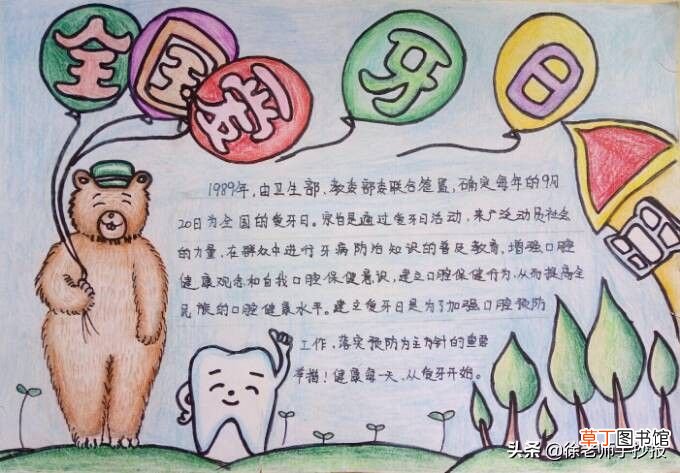 全国爱牙日
1989年，由卫生部、教委部委联合签署，确定每年的9月
20日为全国的爱牙日。宗旨是通过爱牙日活动，来广泛动员社会
的力量，在群众中进行牙病防治知识的普及教育，增强口腔
健康观念和自我口腔保健意识，建立口腔保健行为，从而提高全
民族的口腔健康水平。建立爱牙日是为了加强口腔预防
工作，落实预防为主方针的重要
举措！健康每一天，从爱牙开始。
草丁图书馆
头条 @徐老师手抄报